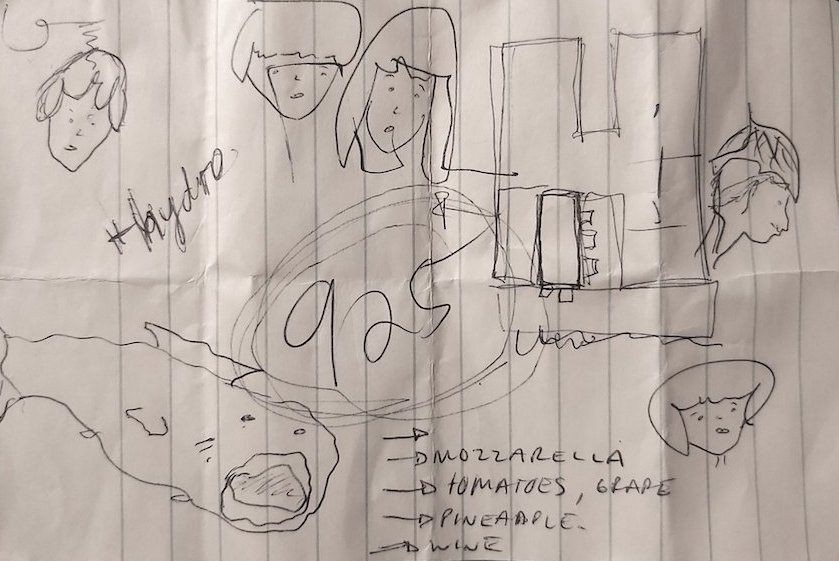 #hydro
925
→
→ MOZZARELLA
→ TOMATOES, GRAPE
→ PINEAPPLE.
→ WINE